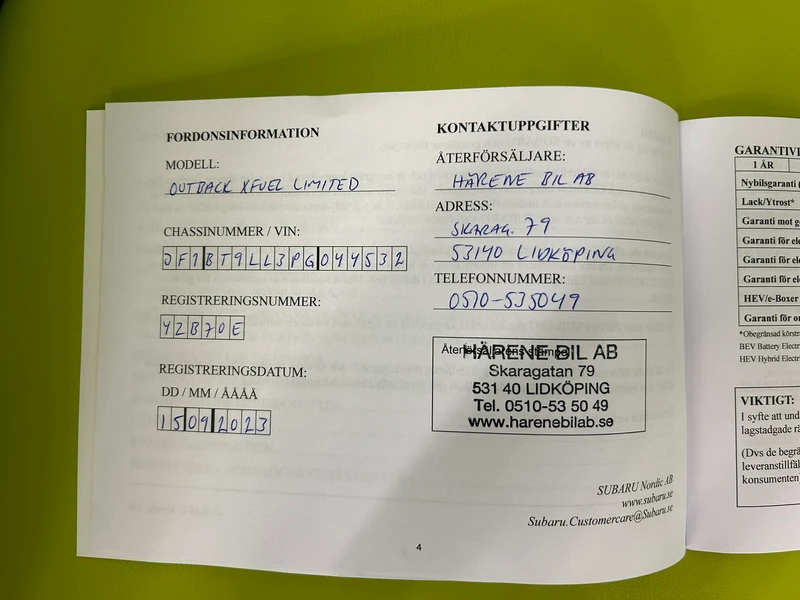 FORDONSINFORMATION
MODELL:
OUTBACK XFUEL LIMITED
CHASSINUMMER / VIN:
JF1BT9LL3PG044532
REGISTRERINGSNUMMER:
YZB70E
REGISTRERINGSDATUM:
DD / MM / ÅÅÅÅ
15092023
KONTAKTUPPGIFTER
ÅTERFÖRSÄLJARE:
HÄRENE BIL AB
ADRESS:
SKARAG. 79
53140 LIDKÖPING
TELEFONNUMMER:
0510-535049
Återförsäljarens stämpel
HÄRENE BIL AB
Skaragatan 79
531 40 LIDKÖPING
Tel. 0510-53 50 49
www.harenebilab.se
SUBARU Nordic AB
www.subaru.se
Subaru.Customercare@Subaru.se
4
GARANTIVI
1 ÅR
Nybilsgaranti (
Lack/Ytrost*
Garanti mot g
Garanti för ele
Garanti för ele
Garanti för ele
HEV/e-Boxer
Garanti för or
*Obegränsad körstr
BEV Battery Electri
HEV Hybrid Electri
VIKTIGT:
I syfte att und
lagstadgade rä
(Dvs de begrä
leveranstillfäl
konsumenten)